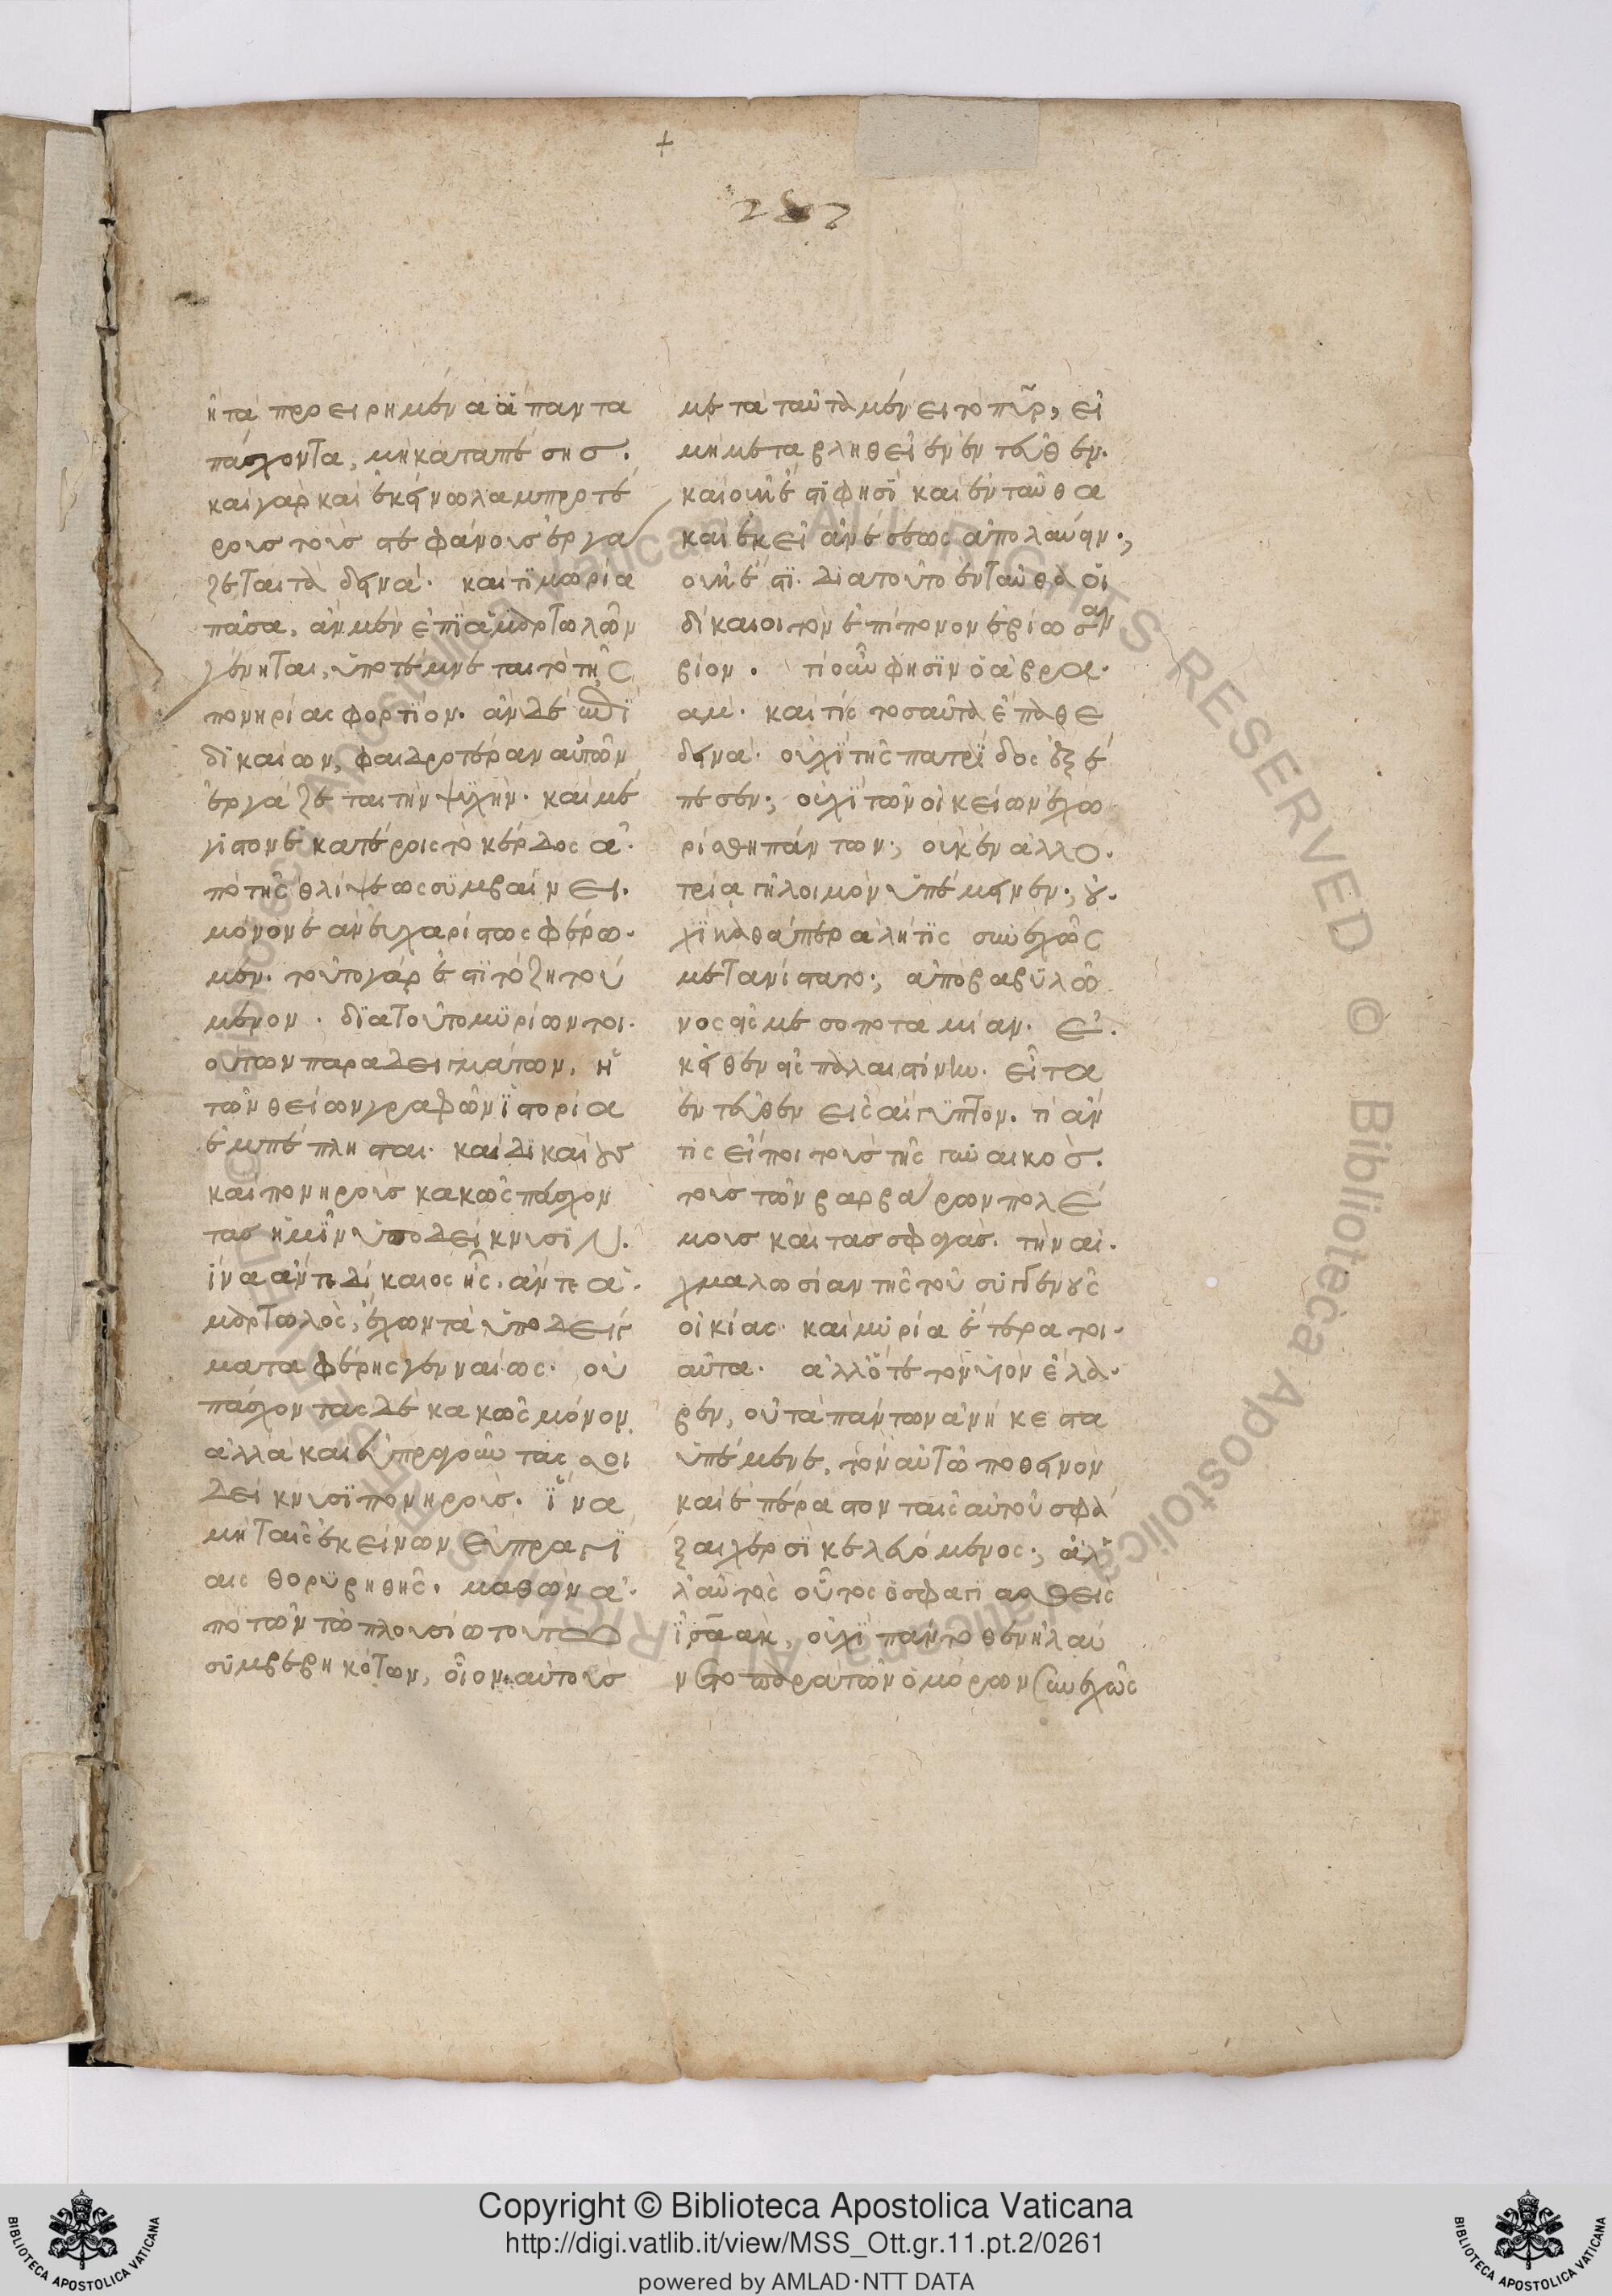 +
287
ἢ τὰ προειρημένα ἅπαντα
πάσχοντα, μὴ καταπέσῃς.
καὶ γὰρ καὶ ἐκείνω λαμπροτέ
ρους τοὺς στεφάνους ἐργά
ζεται τὰ δεινά. καὶ τιμωρία
πᾶσα, ἂν μὲν ἐπὶ ἁμαρτωλῶν
γένηται, ὑποτέμνεται τὸ τῆς
πονηρίας φορτίον. ἂν δὲ ἐπὶ
δικαίων, φαιδροτέραν αὐτῶν
ἐργάζεται τὴν ψυχήν. καὶ μέ
γιστον ἑκατέροις τὸ κέρδος ἀ
πὸ τῆς θλίψεως συμβαίνει.
μόνον ἐὰν εὐχαρίστως φέρω
μεν. τοῦτο γάρ ἐστι τὸ ζητού
μενον. διὰ τοῦτο μυρίων τοι
ούτων παραδειγμάτων, ἡ
τῶν θείων γραφῶν ἱστορία
ἐμπέπλησται. καὶ δικαίους
καὶ πονηροὺς κακῶς πάσχον
τας ἡμῖν ὑποδείκνυσιν.
ἵνα ἄν τε δίκαιος ἧς. ἄν τε ἁ
μαρτωλὸς, ἔχων τὰ ὑποδείγ
ματα φέρῃς γενναίως. οὐ
πάσχοντας δὲ κακῶς μόνον
ἀλλὰ καὶ εὐπραγοῦντάς σοι
δείκνυσι πονηρούς. ἵνα
μὴ ταῖς ἐκείνων εὐπραγί
αις θορυβηθῆς. μαθὼν ἀ
πὸ τῶν τῷ πλουσίω τούτω
συμβεβηκότων, οἷον αὐτοὺς
μετὰ ταῦτα μένει τὸ πῦρ, εἰ
μὴ μεταβληθεῖεν ἐντεῦθεν.
καὶ οὐκ ἔστι φησὶ καὶ ἐνταῦθα
καὶ ἐκεῖ ἀνέσεως ἀπολαύειν;
οὐκ ἔστι. διὰ τοῦτο ἐνταῦθα οἱ
δίκαιοι τὸν ἐπίπονον ἐβίωσαν
βίον. τί οὖν φησὶν ὁ ἀβρα
άμ. καὶ τίς τοσαῦτα ἔπαθε
δεινά. οὐχὶ τῆς πατρίδος ἐξέ
πεσεν; οὐχὶ τῶν οἰκείων ἐχω
ρίσθη πάντων; οὐκ ἐν ἀλλο
τρία γῆ λοιμὸν ὑπέμεινεν; οὐ
χὶ καθάπερ ἀλήτις συνεχῶς
μετανίστατο; ἀπὸ βαβυλῶ
νος εἰς μεσοποταμίαν. ἐ
κεῖθεν εἰς παλαιστίνην. εἶτα
ἐντεῦθεν εἰς αἴγυπτον. τί ἄν
τις εἴποι τοὺς τῆς γυναικός.
τοὺς τῶν βαρβάρων πολέ
μους καὶ τὰς σφαγάς. τὴν αἰ
χμαλωσίαν τῆς τοῦ συγγενοῦς
οἰκίας. καὶ μυρία ἕτερα τοι
αῦτα. ἀλλ' ὅτε τὸν υἱὸν ἔλα
βεν, οὐ τὰ πάντων ἀνήκεστα
ὑπέμενε, τὸν αὐτῷ ποθεινὸν
καὶ ἐπέραστον ταῖς αὐτοῦ σφά
ξαι χερσὶ κελευόμενος; ἀλ
λ' αὐτὸς οὗτος ὁ σφαγιασθεὶς
ἰσαὰκ, οὐχὶ πάντοθεν ἠλαύ
νετο παρὰ τῶν ὁμόρων συνεχῶς